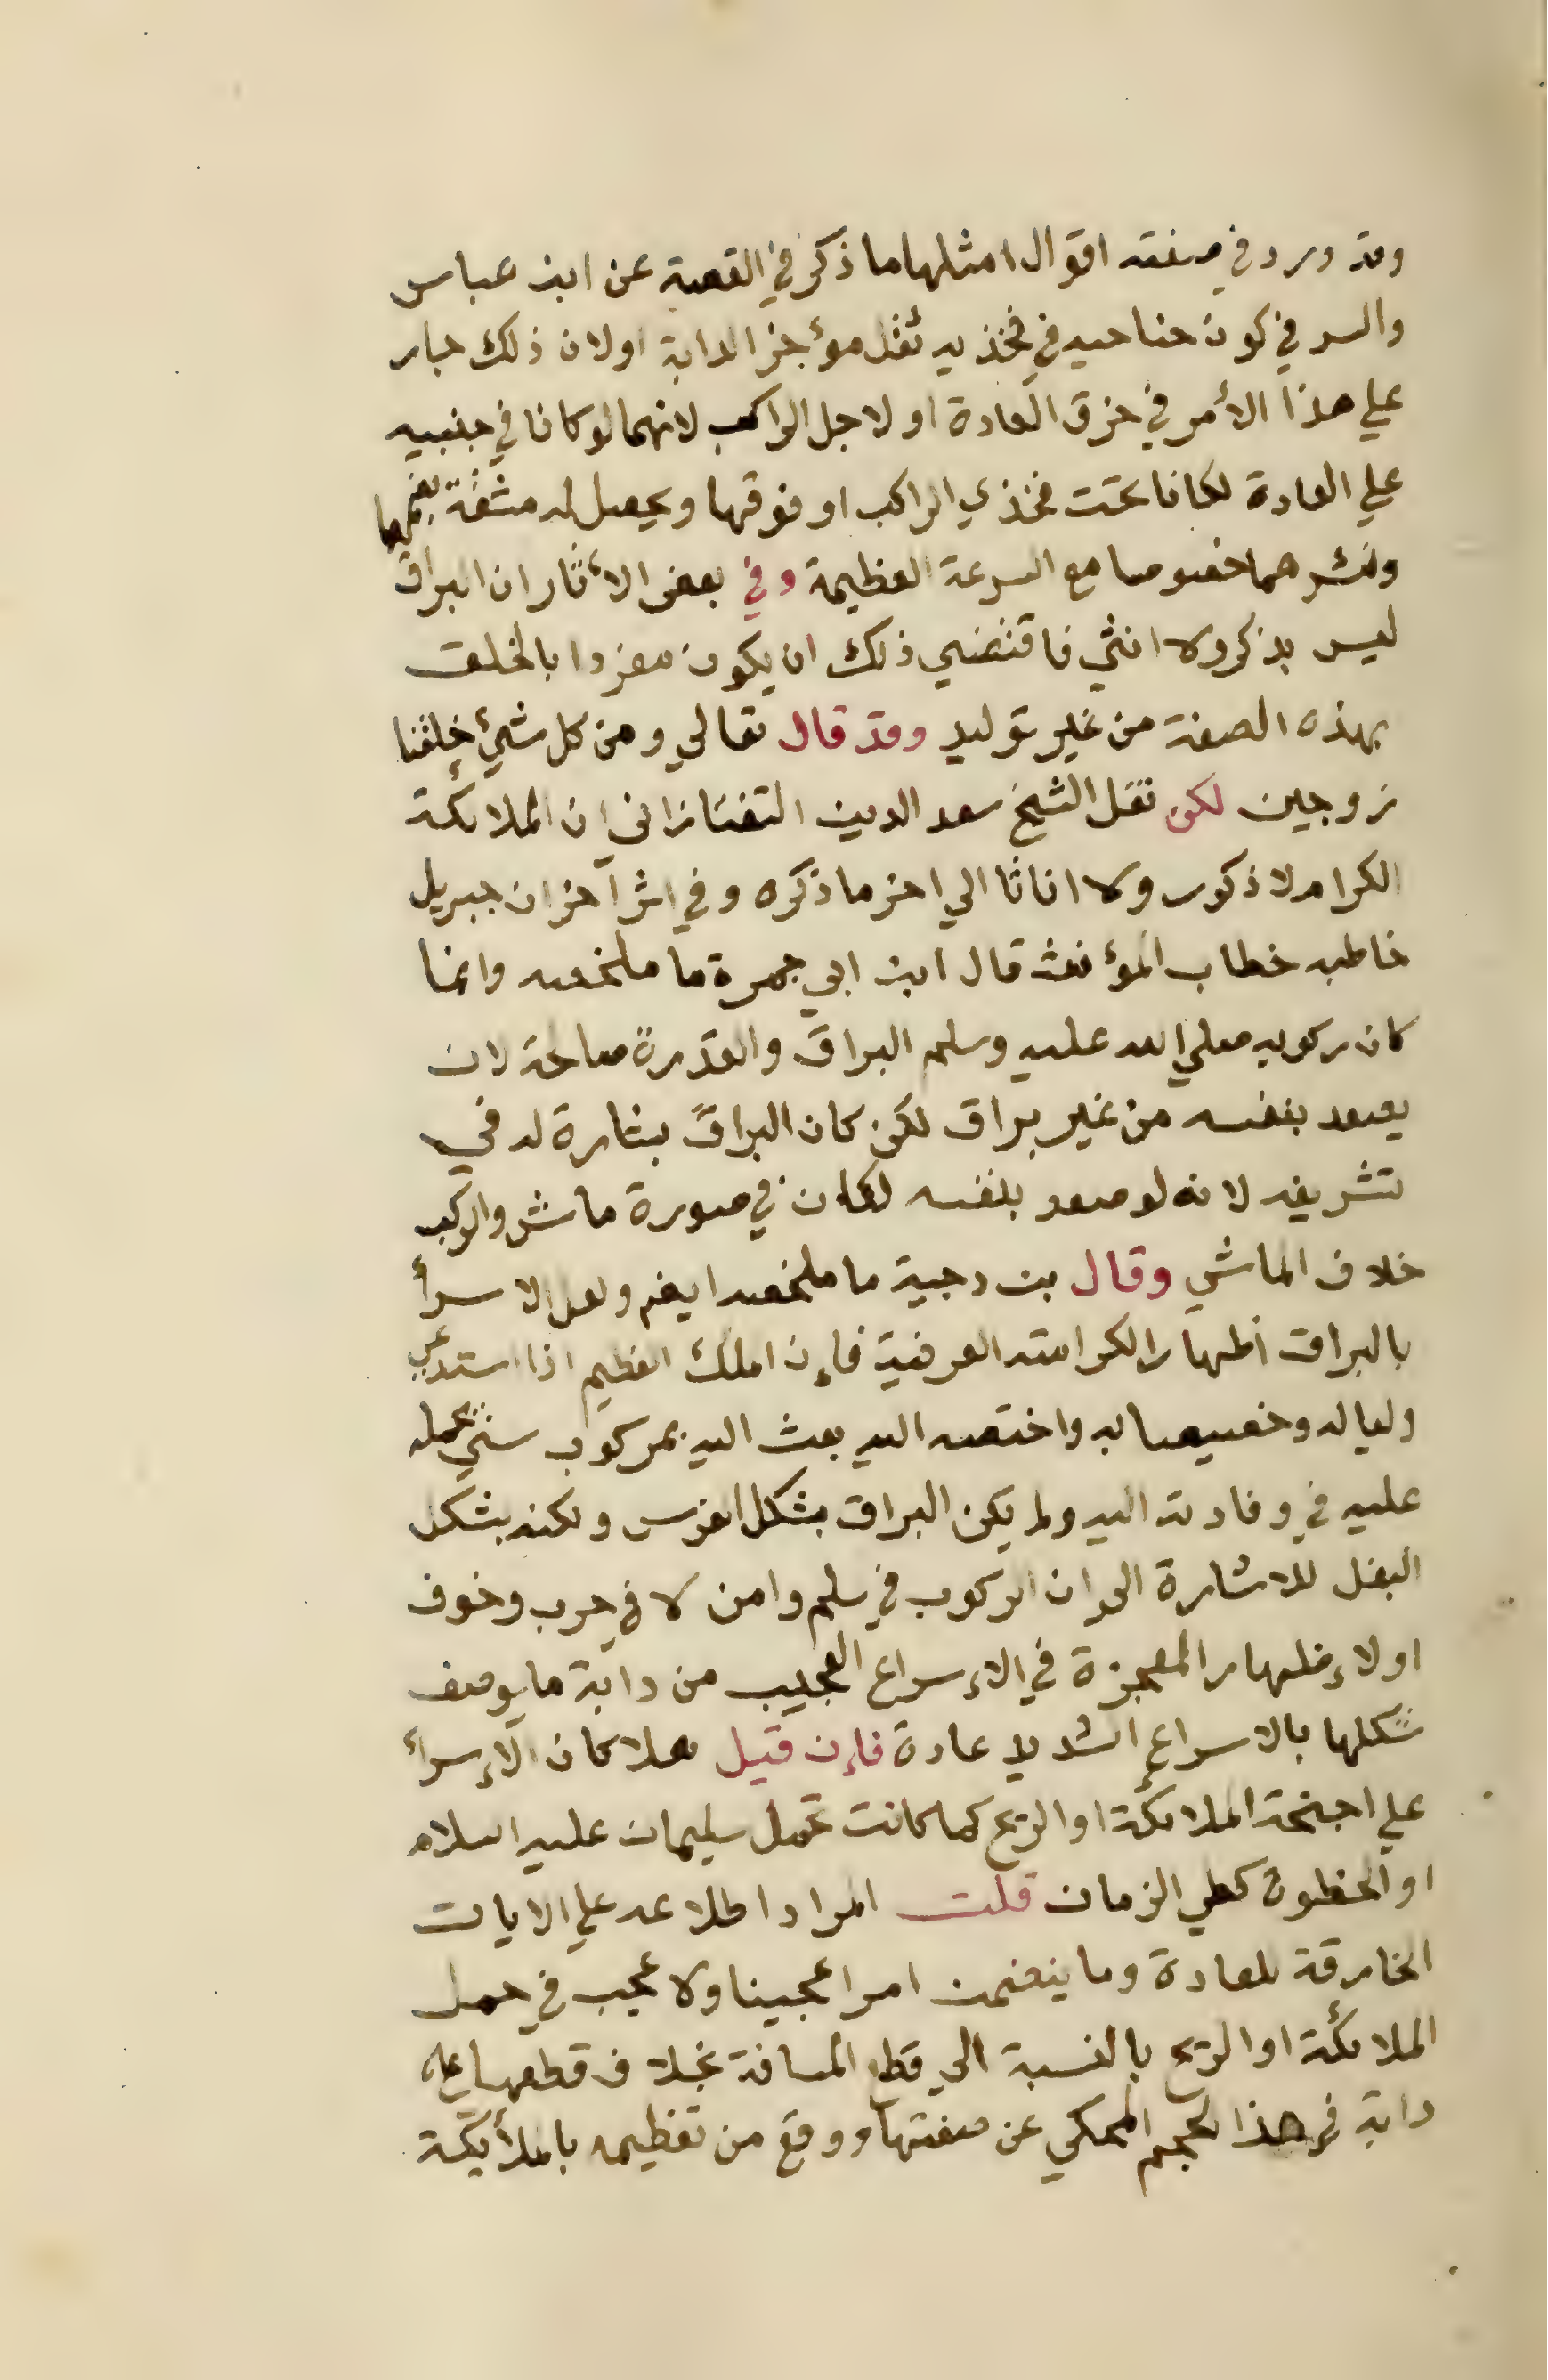 وقد ورد في صفته اقوال امثلها ما ذكر في القصة عن ابن عباس
والسر في كون جناحيه في فخذيه ثقل مؤخر الدابة اولان ذلك جار
علي هذا الأمر في خرق العادة او لاجل الراكب لانهما لو كانا في جنبيه
علي العادة لكانا تحت فخذي الراكب او فوقها ويحصل له مشقة بضمهما
ونشرهما خصوصا مع السرعة العظيمة وفي بعض الأثار ان البراق
ليس بذكر ولا انثي فاقتضي ذلك ان يكون مفردا بالخلق
بهذه الصفة من غير توليد وقد قال تعالي ومن كل شيئ خلقنا
زوجين لكن نقل الشيخ سعد الدين التفتازاني ان الملائكة
الكرام لا ذكور ولا اناثا الي اخر ما ذكره وفي اثر آخر ان جبريل
خاطبه خطاب المؤنث قال ابن ابي جمرة ما ملخصه وانما
كان ركوبه صلي الله عليه وسلم البراق والقدرة صالحة لان
يصعد بنفسه من غير براق لكن كان البراق بشارة له في
تشريفه لانه لو صعد بنفسه لكان في صورة ماش والراكب
خلاف الماشي وقال بن دحية ما ملخصه ايضم ولعل الاسرأ
بالبراق اظهارا لكرامته العرفية فإن الملك العظيم اذا استدعي
وليا له وخصيصا به واختصه اليه بعث اليه بمركوب سني يحمله
عليه في وفادته اليه ولم يكن البراق بشكل الفرس ولكنه بشكل
البغل للاشارة الي ان الركوب في سلم وامن لا في حرب وخوف
او لإظهار المعجزة في الإسراع العجيب من دابة ما يوصف
شكلها بالاسراع الشديد عادة فإن قيل هلا كان الإسرأ
علي اجنحة الملائكة او الريح كما كانت تحمل سليمان عليه السلام
او الخطوة كطي الزمان قلت المراد اطلاعه علي الايات
الخارقة للعادة وما يتضمن امرا عجيبا ولا عجب في حمل
الملائكة او الريح بالنسبة الي قطع المسافة بخلاف قطعها علي
دابة في هذا الحجم المحكي عن صفتها ووقع من تعظيمه بالملائكة